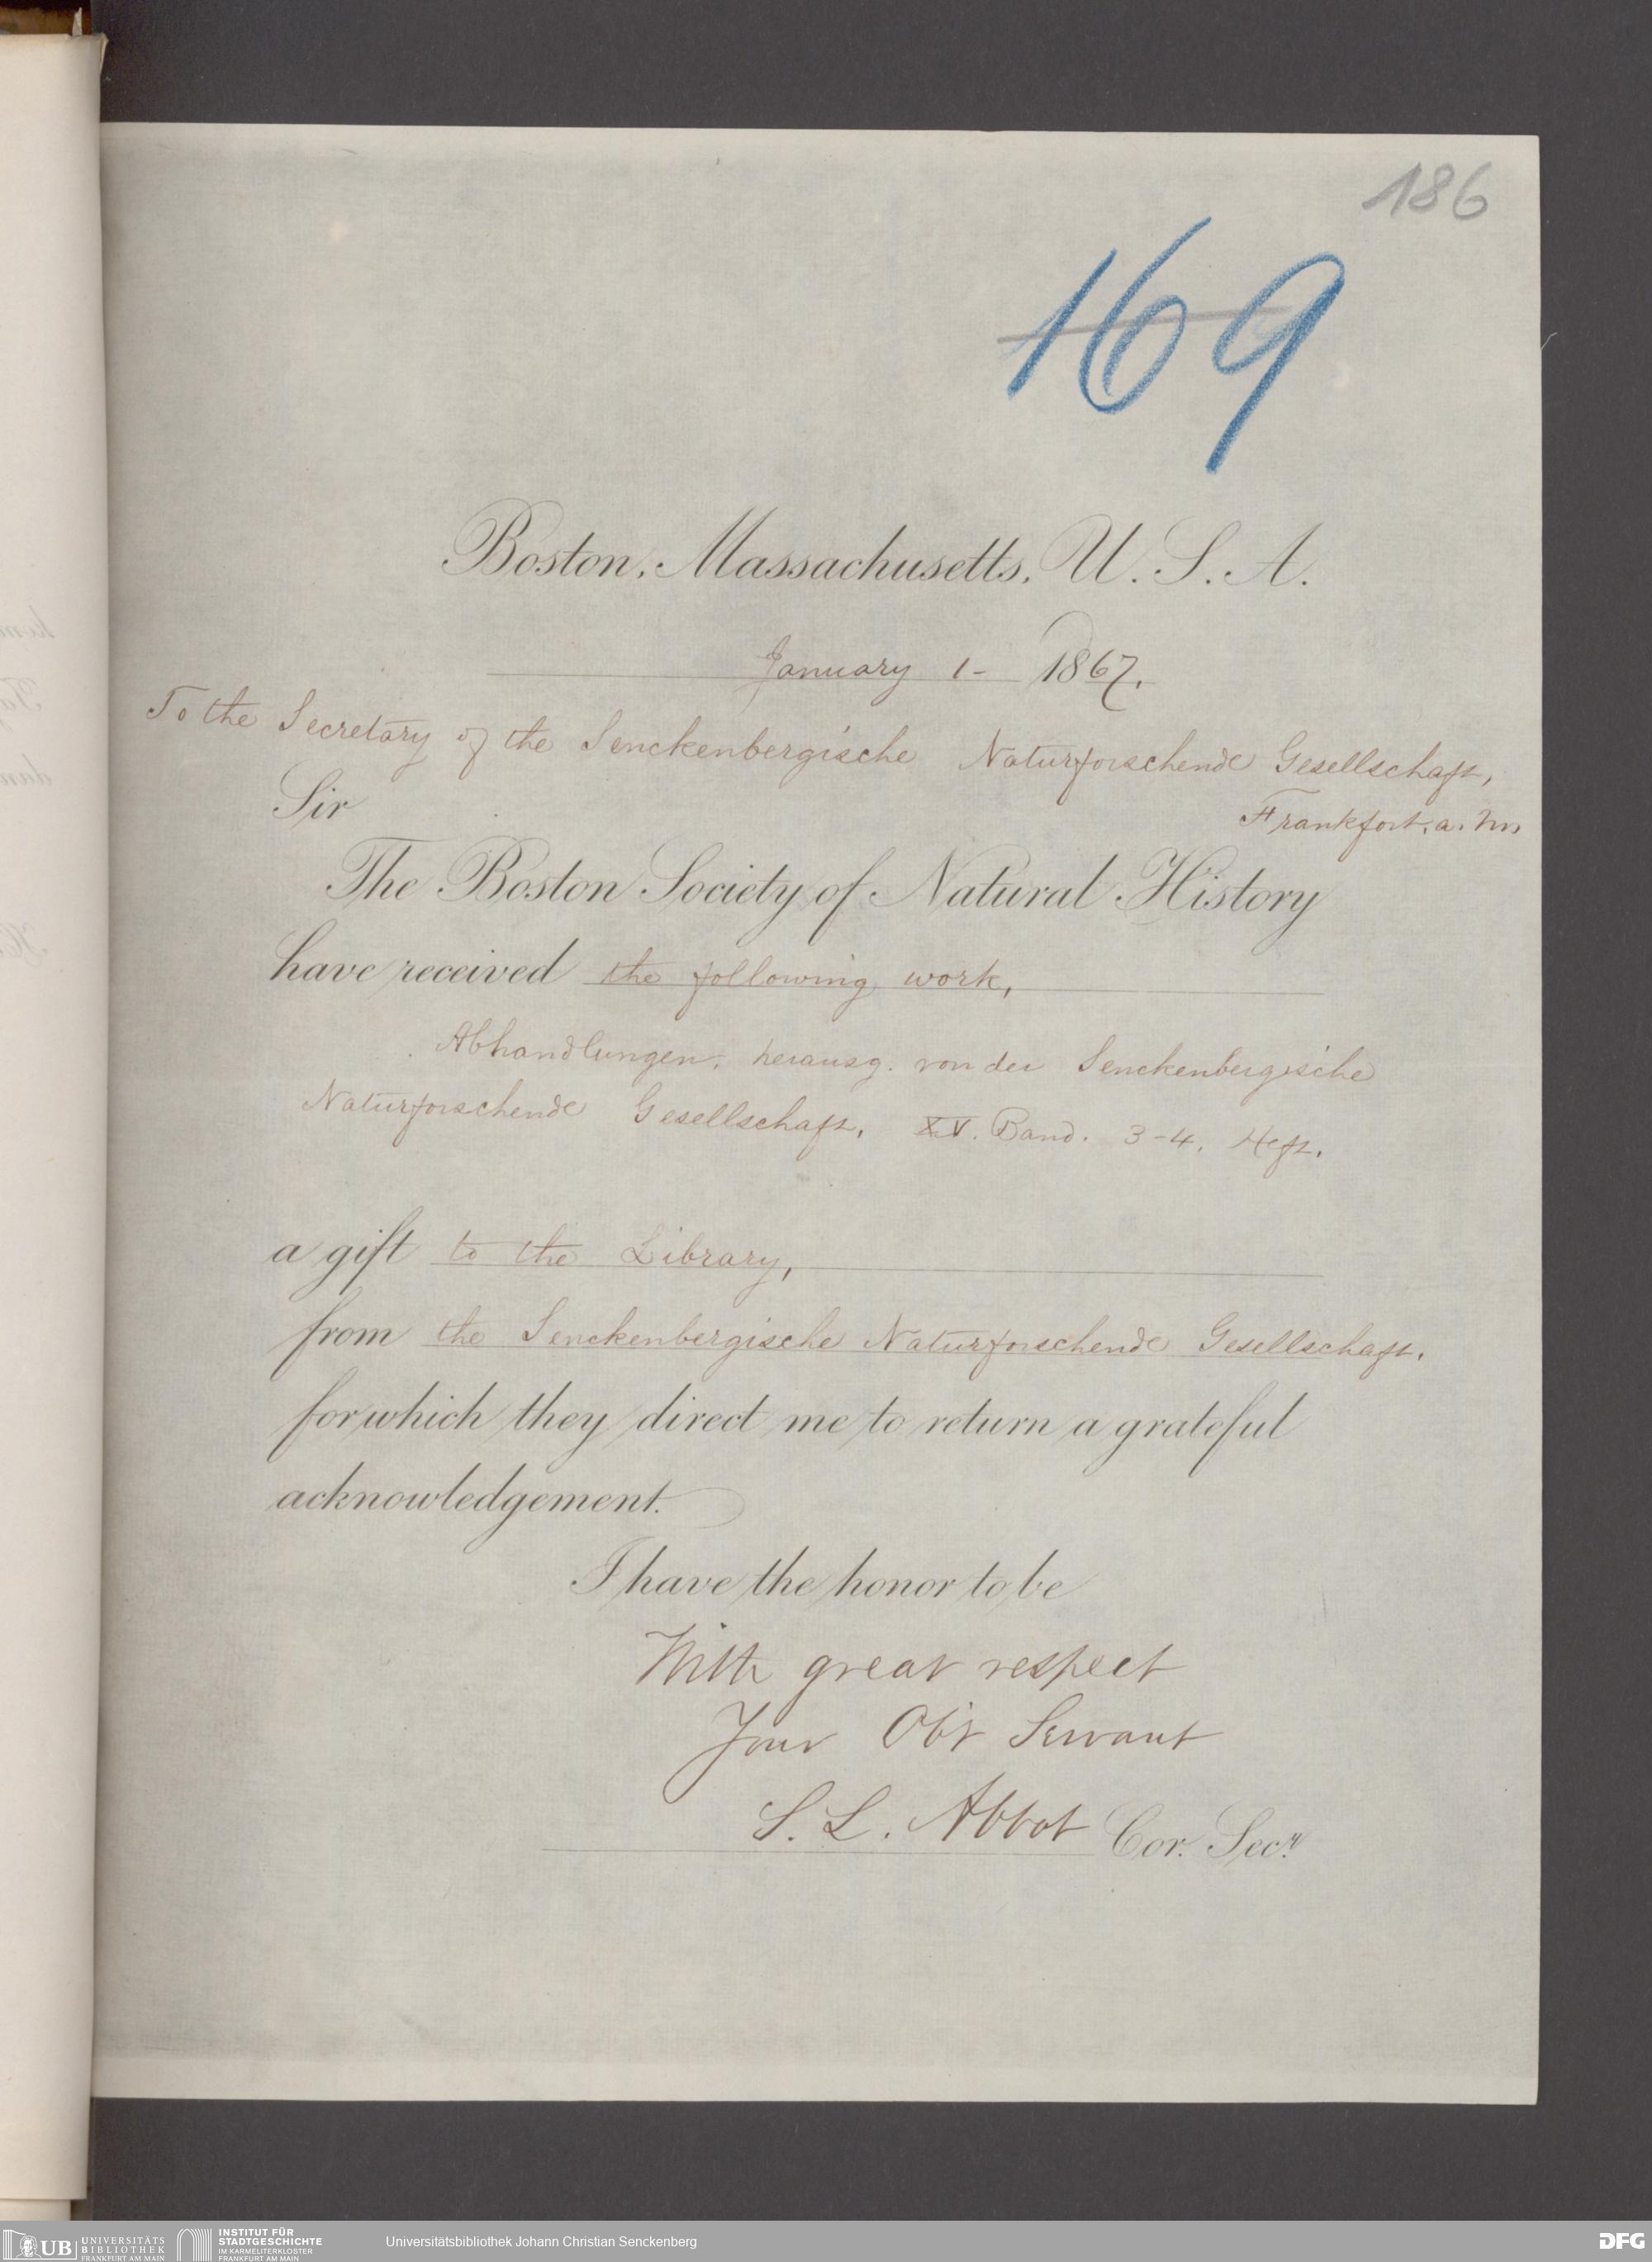 186
169
Boston, Massachusetts, U. S. A.
January 1- 1867.
To the Secretary of the Senckenbergische Naturforschende Gesellschaft,
Frankfort. a. M
Sir
The Boston Society of Natural History
have received the following work,
Abhandlungen, herausg. von der Senckenbergische
Naturforschende Gesellschaft, XV. Band. 3-4. Heft.
a gift to the Library,
from the Senckenbergische Naturforschende Gesellschaft.
for which they direct me to return a grateful
acknowledgement.
I have the honor to be
With great respect
Your Ob't Servant
S. L. Abbot Cor. Secy
UB UNIVERSITÄTS
BIBLIOTHEK
FRANKFURT AM MAIN
INSTITUT FÜR
STADTGESCHICHTE
IM KARMELITERKLOSTER
FRANKFURT AM MAIN
Universitätsbibliothek Johann Christian Senckenberg
DFG